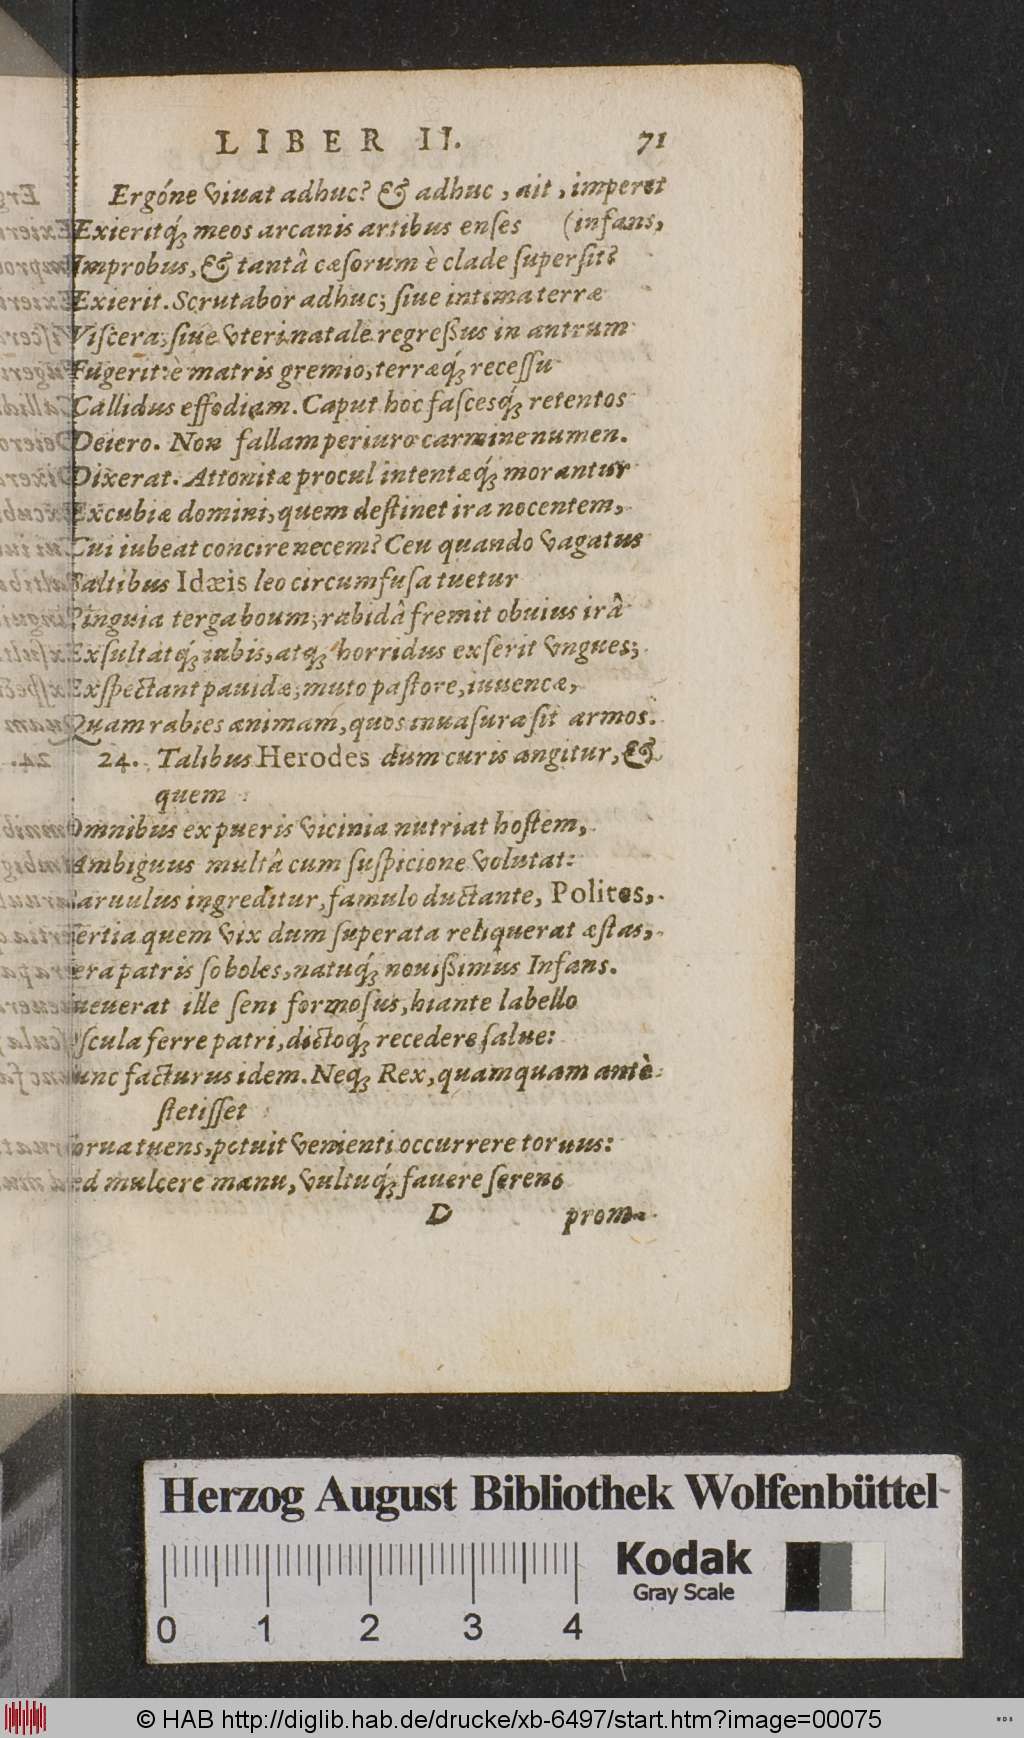 LIBER II. 71
Ergóne viuat adhuc? & adhuc, ait, imperet
Exieritq́; meos arcanis artibus enses (infans,
Improbus, & tantâ cæsorum è clade supersit?
Exierit. Scrutabor adhuc; siue intima terræ
Viscera, siue vteri natale regreßus in antrum
Fugerit: è matris gremio, terræq́; recessu
Callidus effodiam. Caput hoc fascesq́; retentos
Deiero. Non fallam periuro carmine numen.
Dixerat. Attonitæ procul intentæq́; morantur
Excubiæ domini, quem destinet ira nocentem,
Cui iubeat concire necem? Ceu quando vagatus
Saltibus Idæis leo circumfusa tuetur
Pinguia terga boum; rabidâ fremit obuius irâ
Exsultatq́; iubis, atq; horridus exserit vngues;
Exspectant pauidæ, muto pastore, iuuencæ,
Quam rabies animam, quos inuasura sit armos.
24. Talibus Herodes dum curis angitur, &
quem
Omnibus ex pueris vicinia nutriat hostem,
Ambiguus multâ cum suspicione volutat:
aruulus ingreditur, famulo ductante, Polites,
ertia quem vix dum superata reliquerat æstas,
era patris soboles, natuq́; nouißimus Infans.
ueuerat ille seni formosus, hiante labello
scula ferre patri, dictoq́; recedere salue:
unc facturus idem. Neq; Rex, quamquam antè
stetisset
orua tuens, potuit venienti occurrere toruus:
ed mulcere manu, vultuq́; fauere sereno
D prom-
Herzog August Bibliothek Wolfenbüttel
Kodak
Gray Scale
0 1 2 3 4
© HAB http://diglib.hab.de/drucke/xb-6497/start.htm?image=00075